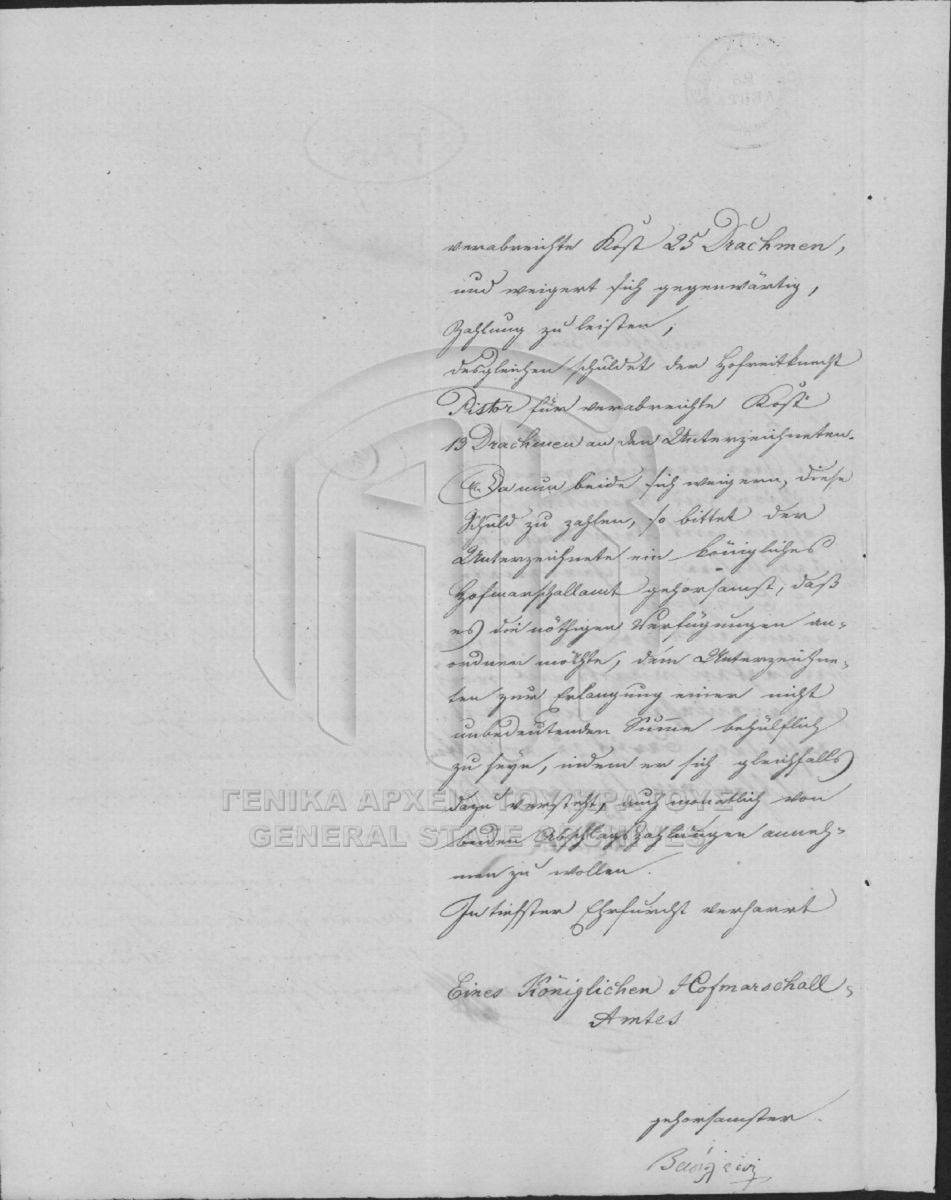 verabreichte Kost 25 Drachmen,
und weigert sich gegenwärtig,
Zahlung zu leisten;
desgleichen schuldet der Hofreitknecht
Pistor für verabreichte Kost
13 Drachmen an den Unterzeichneten.
Da nun beide sich weigern, diese
Schuld zu zahlen, so bittet der
Unterzeichnete ein königliches
Hofmarschallamt gehorsamst, daß
es die nöthigen Verfügungen an-
ordnen möchte, dem Unterzeichne-
ten zur Erlangung einer nicht
unbedeutenden Summe behülflich
zu seyn, indem er sich gleichfalls
dazu versteht, auch monatlich von
beiden Abschlagszahlungen anneh-
men zu wollen.
In tiefster Ehrfurcht verharrt
Eines Königlichen Hofmarschall-
Amtes
gehorsamster
ΓΕΝΙΚΑ ΑΡΧΕΙΑ ΤΟΥ ΚΡΑΤΟΥΣ
GENERAL STATE ARCHIVES